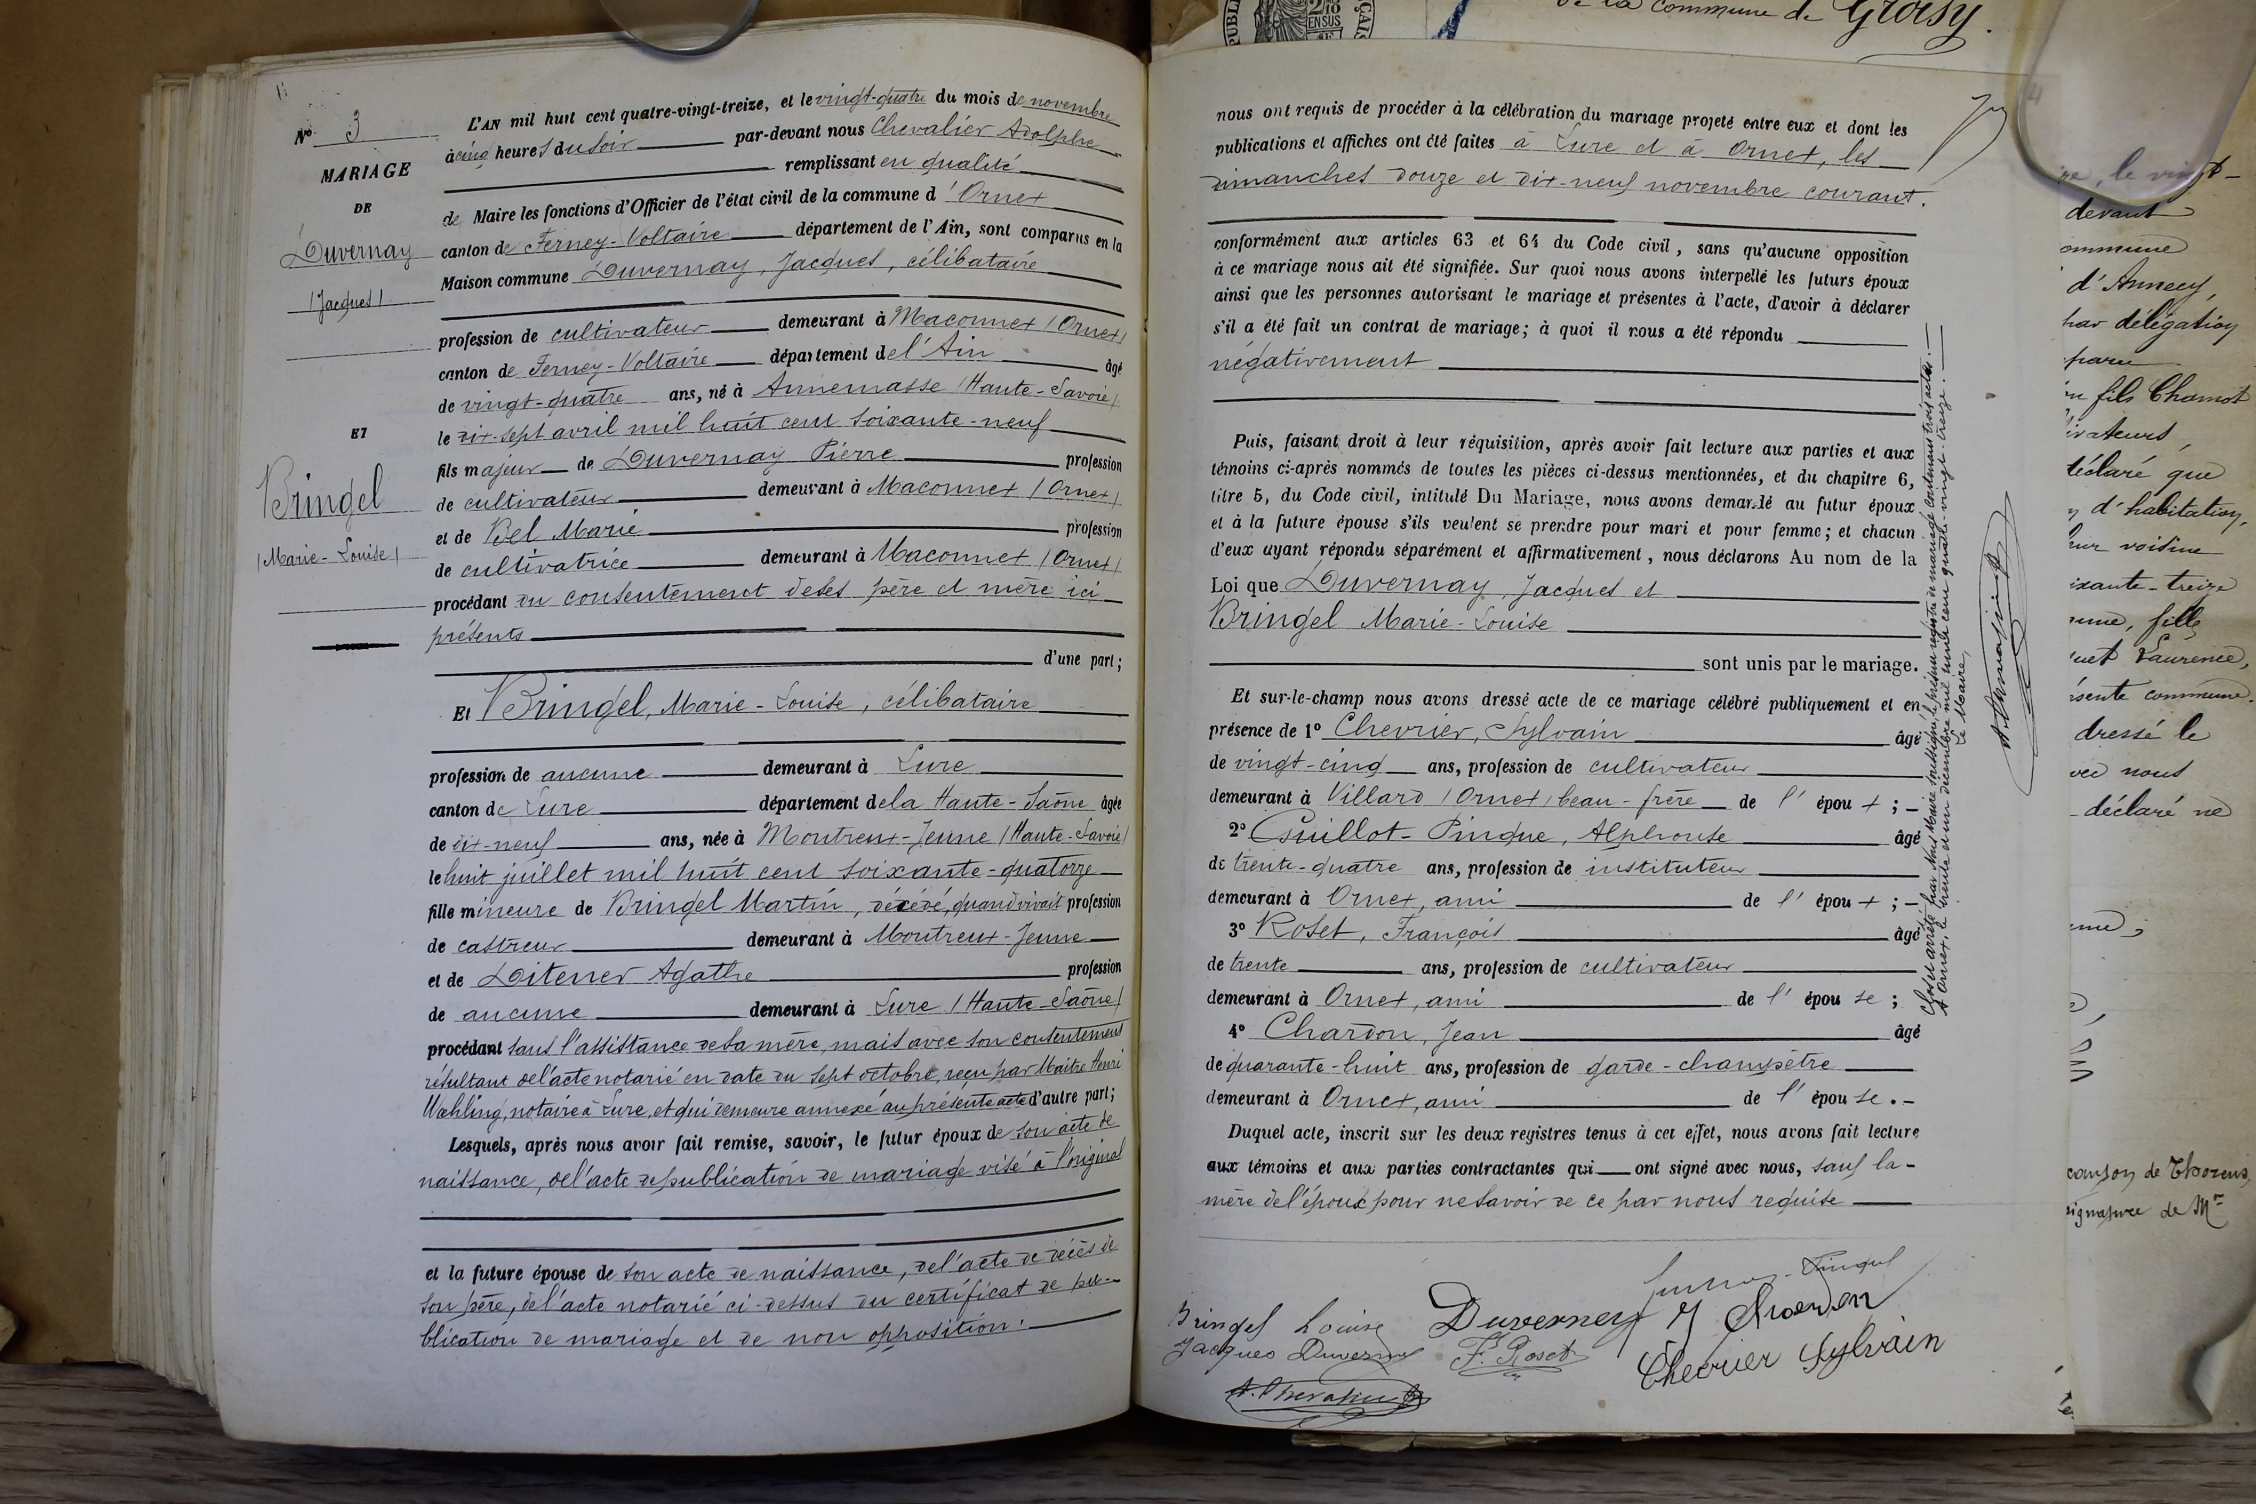 Nº 3
MARIAGE
DE
Duvernay
(Jacques)
ET
Bringel
(Marie-Louise)
L'AN mil huit cent quatre-vingt-treize, et le vingt-quatre du mois de novembre
à cinq heures du soir par-devant nous Chevalier Adolphe
remplissant en qualité
de Maire les fonctions d'Officier de l'état civil de la commune d'Ornex
canton de Ferney-Voltaire département de l'Ain, sont comparus en la
Maison commune Duvernay, Jacques, célibataire
profession de cultivateur demeurant à Maconnex (Ornex)
canton de Ferney-Voltaire département de l'Ain âgé
de vingt-quatre ans, né à Annemasse (Haute-Savoie)
le dix-sept avril mil huit cent soixante-neuf
fils majeur de Duvernay Pierre profession
de cultivateur demeurant à Maconnex (Ornex)
et de Bel Marie profession
de cultivatrice demeurant à Maconnex (Ornex)
procédant du consentement de ses père et mère ici
présents
d'une part;
Et Bringel, Marie-Louise, célibataire
profession de aucune demeurant à Lure
canton de Lure département de la Haute-Saône âgée
de dix-neuf ans, née à Montreux-Jeune (Haute-Savoie)
le huit juillet mil huit cent soixante-quatorze
fille mineure de Bringel Martin, décédé, quand vivait profession
de castreur demeurant à Montreux-Jeune
et de Ditener Agathe profession
de aucune demeurant à Lure (Haute-Saône)
procédant sans l'assistance de sa mère, mais avec son consentement
résultant de l'acte notarié en date du sept octobre, reçu par Maître Henri
Wœhling, notaire à Lure, et qui demeure annexé au présente acte d'autre part;
Lesquels, après nous avoir fait remise, savoir, le futur époux de son acte de
naissance, de l'acte de publication de mariage visé à l'original
et la future épouse de son acte de naissance, de l'acte de décès de
son père, de l'acte notarié ci-dessus du certificat de pu-
blication de mariage et de non opposition.
nous ont requis de procéder à la célébration du mariage projeté entre eux et dont les
publications et affiches ont été faites à Lure et à Ornex, les
dimanches douze et dix-neuf novembre courant.
conformément aux articles 63 et 64 du Code civil, sans qu'aucune opposition
à ce mariage nous ait été signifiée. Sur quoi nous avons interpellé les futurs époux
ainsi que les personnes autorisant le mariage et présentes à l'acte, d'avoir à déclarer
s'il a été fait un contrat de mariage; à quoi il nous a été répondu
négativement
Puis, faisant droit à leur réquisition, après avoir fait lecture aux parties et aux
témoins ci-après nommés de toutes les pièces ci-dessus mentionnées, et du chapitre 6,
titre 5, du Code civil, intitulé Du Mariage, nous avons demandé au futur époux
et à la future épouse s'ils veulent se prendre pour mari et pour femme; et chacun
d'eux ayant répondu séparément et affirmativement, nous déclarons Au nom de la
Loi que Duvernay, Jacques et
Bringel Marie-Louise
sont unis par le mariage.
Et sur-le-champ nous avons dressé acte de ce mariage célébré publiquement et en
présence de 1º Chevrier, Sylvain âgé
de vingt-cinq ans, profession de cultivateur
demeurant à Villard (Ornex) beau-frère de l'époux;
2º Guillot-Pingue, Alphonse âgé
de trente-quatre ans, profession de instituteur
demeurant à Ornex, ami de l'époux;
3º Roset, François âgé
de trente ans, profession de cultivateur
demeurant à Ornex, ami de l'épouse;
4º Chardon, Jean âgé
de quarante-huit ans, profession de garde-champêtre
demeurant à Ornex, ami de l'épouse.
Duquel acte, inscrit sur les deux registres tenus à cet effet, nous avons fait lecture
aux témoins et aux parties contractantes qui ont signé avec nous, sauf la
mère de l'époux pour ne savoir de ce par nous requise
Bringel Louise
Duverney
J Chardon
Jacques Duvernay
F. Roset
Chevrier Sylvain
A. Chevalier
Clos et arrêté par Nous Maire soussigné, le présent registre de mariage contenant trois actes.
A Ornex, le trente et un décembre mil huit cent quatre-vingt-treize.
Le Maire,
de la commune de Groisy.
le vingt-
devant
commune
d'Annecy,
par délégation
fils Chamot
déclaré que
d'habitation,
voisine
soixante-treize
fille
Laurence,
présente commune.
dressé le
avec nous
déclaré ne
canton de Thorens,
signature de Mr